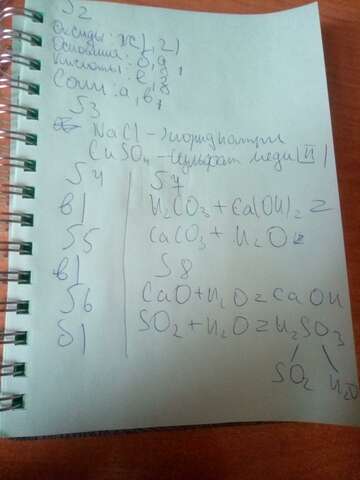 S2
Оксиды: ж), г)
Основания: б, д
Кислоты: е, з
Соли: а, в,
S3
NaCl – хлорид натрия
CuSO4 – сульфат меди (II)
S4
в)
S5
в)
S6
б)
S7
H2CO3 + Ca(OH)2 =
CaCO3 + H2O
S8
CaO + H2O = CaOH
SO2 + H2O = H2SO3
SO2 H2O